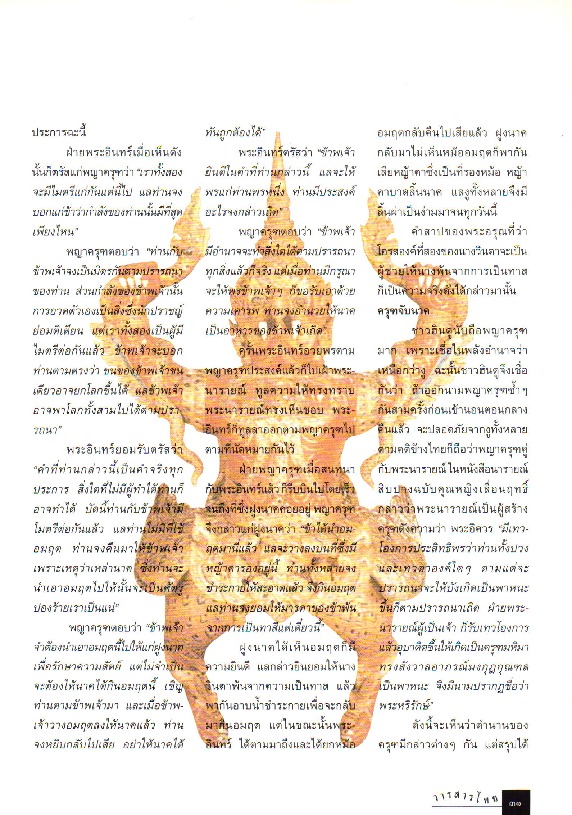 ประการฉะนี้
ฝ่ายพระอินทร์เมื่อเห็นดัง
นั้นก็ตรัสแก่พญาครุฑว่า “เราทั้งสอง
จะมีไมตรีแก่กันแต่นี้ไป แลท่านจง
บอกแก่ข้าว่ากำลังของท่านนั้นมีที่สุด
เพียงไหน”
พญาครุฑตอบว่า “ท่านกับ
ข้าพเจ้าจงเป็นมิตรกันตามปรารถนา
ของท่าน ส่วนกำลังของข้าพเจ้านั้น
การยกตัวเองเป็นสิ่งซึ่งนักปราชญ์
ย่อมติเตียน แต่เราทั้งสองเป็นผู้มี
ไมตรีต่อกันแล้ว ข้าพเจ้าจะบอก
ท่านตามตรงว่า ขนของข้าพเจ้าขน
เดียวอาจยกโลกขึ้นได้ แลข้าพเจ้า
อาจพาโลกทั้งสามไปได้ตามปรา-
รถนา”
พระอินทร์ยอมรับตรัสว่า
“คำที่ท่านกล่าวนี้เป็นคำจริงทุก
ประการ สิ่งใดที่ไม่มีผู้ทำได้ท่านก็
อาจทำได้ บัดนี้ท่านกับข้าพเจ้ามี
ไมตรีต่อกันแล้ว แลท่านไม่มีที่ใช้
อมฤต ท่านจงคืนมาให้ข้าพเจ้า
เพราะเหตุว่าเหล่านาค ซึ่งท่านจะ
นำเอาอมฤตไปให้นั้นจะเป็นศัตรู
ปองร้ายเราเป็นแน่”
พญาครุฑตอบว่า “ข้าพเจ้า
จำต้องนำเอาอมฤตนี้ไปให้แก่ฝูงนาค
เพื่อรักษาความสัตย์ แต่ไม่จำเป็น
จะต้องให้นาคได้กินอมฤตนี้ เชิญ
ท่านตามข้าพเจ้ามา และเมื่อข้าพ-
เจ้าวางอมฤตลงให้นาคแล้ว ท่าน
จงหยิบกลับไปเสีย อย่าให้นาคได้
ทันถูกต้องได้”
พระอินทร์ตรัสว่า “ข้าพเจ้า
ยินดีในคำที่ท่านกล่าวนี้ แลจะให้
พรแก่ท่านพรหนึ่ง ท่านมีประสงค์
อะไรจงกล่าวเถิด”
พญาครุฑตอบว่า “ข้าพเจ้า
มีอำนาจจะทำสิ่งใดได้ตามปรารถนา
ทุกสิ่งแล้วก็จริง แต่เมื่อท่านมีกรุณา
จะให้พรข้าพเจ้าๆ ก็ขอรับเอาด้วย
ความเคารพ ท่านจงอำนวยให้นาค
เป็นอาหารของข้าพเจ้าเถิด”
ครั้นพระอินทร์อวยพรตาม
พญาครุฑประสงค์แล้วก็ไปเฝ้าพระ-
นารายณ์ ทูลความให้ทรงทราบ
พระนารายณ์ทรงเห็นชอบ พระ-
อินทร์ก็ทูลลาออกตามพญาครุฑไป
ตามที่นัดหมายกันไว้
ฝ่ายพญาครุฑเมื่อสนทนา
กับพระอินทร์แล้ว ก็รีบบินไปโดยเร็ว
จนถึงที่ซึ่งฝูงนาคคอยอยู่ พญาครุฑ
จึงกล่าวแก่ฝูงนาคว่า “ข้าได้นำอม-
ฤตมานี่แล้ว แลจะวางลงบนที่ซึ่งมี
หญ้าคารองอยู่นี้ ท่านทั้งหลายจง
ชำระกายให้สะอาดแล้ว จึงกินอมฤต
แลท่านจงยอมให้มารดาของข้าพ้น
จากการเป็นทาสีแต่เดี๋ยวนี้”
ฝูงนาคได้เห็นอมฤตก็มี
ความยินดี แลกล่าวยินยอมให้นาง
วินตาพ้นจากความเป็นทาส แล้ว
พากันอาบน้ำชำระกายเพื่อจะกลับ
มากินอมฤต แต่ในขณะนั้นพระ-
อินทร์ ได้ตามมาถึงและได้ยกหม้อ
อมฤตกลับคืนไปเสียแล้ว ฝูงนาค
กลับมาไม่เห็นหม้ออมฤตก็พากัน
เลียหญ้าคาซึ่งเป็นที่รองหม้อ หญ้า
คาบาดลิ้นนาค แลงูทั้งหลายจึงมี
ลิ้นผ่าเป็นง่ามมาจนทุกวันนี้
คำสาปของพระอรุณที่ว่า
โอรสองค์ที่สองของนางวินตาจะเป็น
ผู้ช่วยให้นางพ้นจากการเป็นทาส
ก็เป็นความจริงดังได้กล่าวมานั้น
ครุฑจับนาค
ชาวฮินดูนับถือพญาครุฑ
มาก เพราะเชื่อในพลังอำนาจว่า
เหนือกว่างู ฉะนั้นชาวฮินดูจึงเชื่อ
กันว่า ถ้าออกนามพญาครุฑซ้ำๆ
กันสามครั้งก่อนเข้านอนตอนกลาง
คืนแล้ว จะปลอดภัยจากงูทั้งหลาย
ตามคติข้างไทยก็ถือว่าพญาครุฑคู่
กับพระนารายณ์ในหนังสือนารายณ์
สิบปางฉบับคุณหญิงเลื่อนฤทธิ์
กล่าวว่าพระนารายณ์เป็นผู้สร้าง
ครุฑดังความว่า พระอิศวร “มีเทว-
โองการประสิทธิพรว่าท่านทั้งปวง
และเทวดาองค์ใดๆ ตามแต่จะ
ปรารถนาจะให้บังเกิดเป็นพาหนะ
ขึ้นก็ตามปรารถนาเถิด ฝ่ายพระ-
นารายณ์ผู้เป็นเจ้า ก็รับเทวโองการ
แล้วอุบาติดขึ้นให้เกิดเป็นครุฑมหิมา
ทรงสังวาลอาภรณ์มงกุฎกุณฑล
เป็นพาหนะ จึงมีนามปรากฏชื่อว่า
พระหริรักษ์”
ดังนี้จะเห็นว่าตำนานของ
ครุฑมีกล่าวต่างๆ กัน แต่สรุปได้
วารสารไทย ๓๑